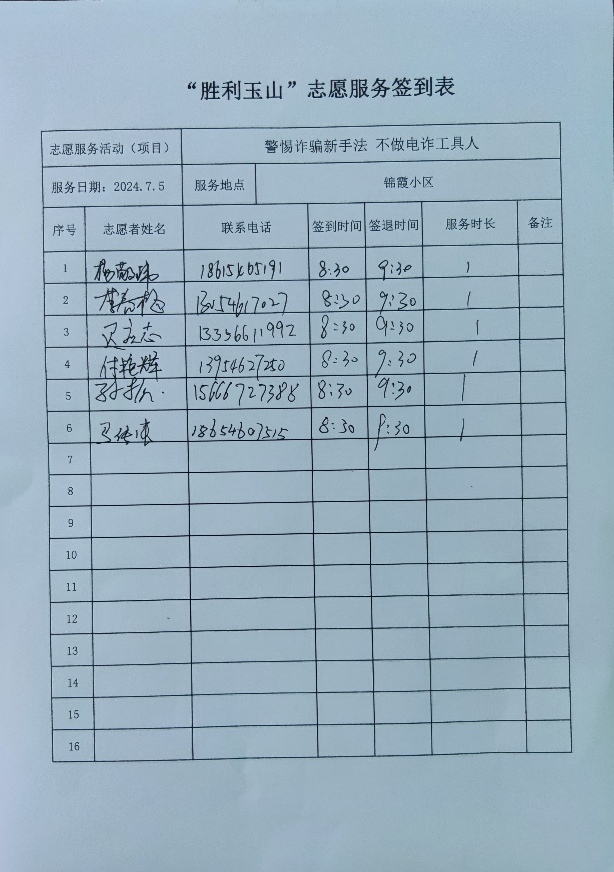 “胜利玉山”志愿服务签到表
志愿服务活动（项目） 警惕诈骗新手法 不做电诈工具人
服务日期：2024.7.5 服务地点 锦霞小区
序号 志愿者姓名 联系电话 签到时间 签退时间 服务时长 备注
1 8:30 9:30 1
2 13054617027 8:30 9:30 1
3 13356611992 8:30 9:30 1
4 付艳辉 13954627250 8:30 9:30 1
5 15666727388 8:30 9:30 1
6 18654607515 8:30 9:30 1
7
8
9
10
11
12
13
14
15
16